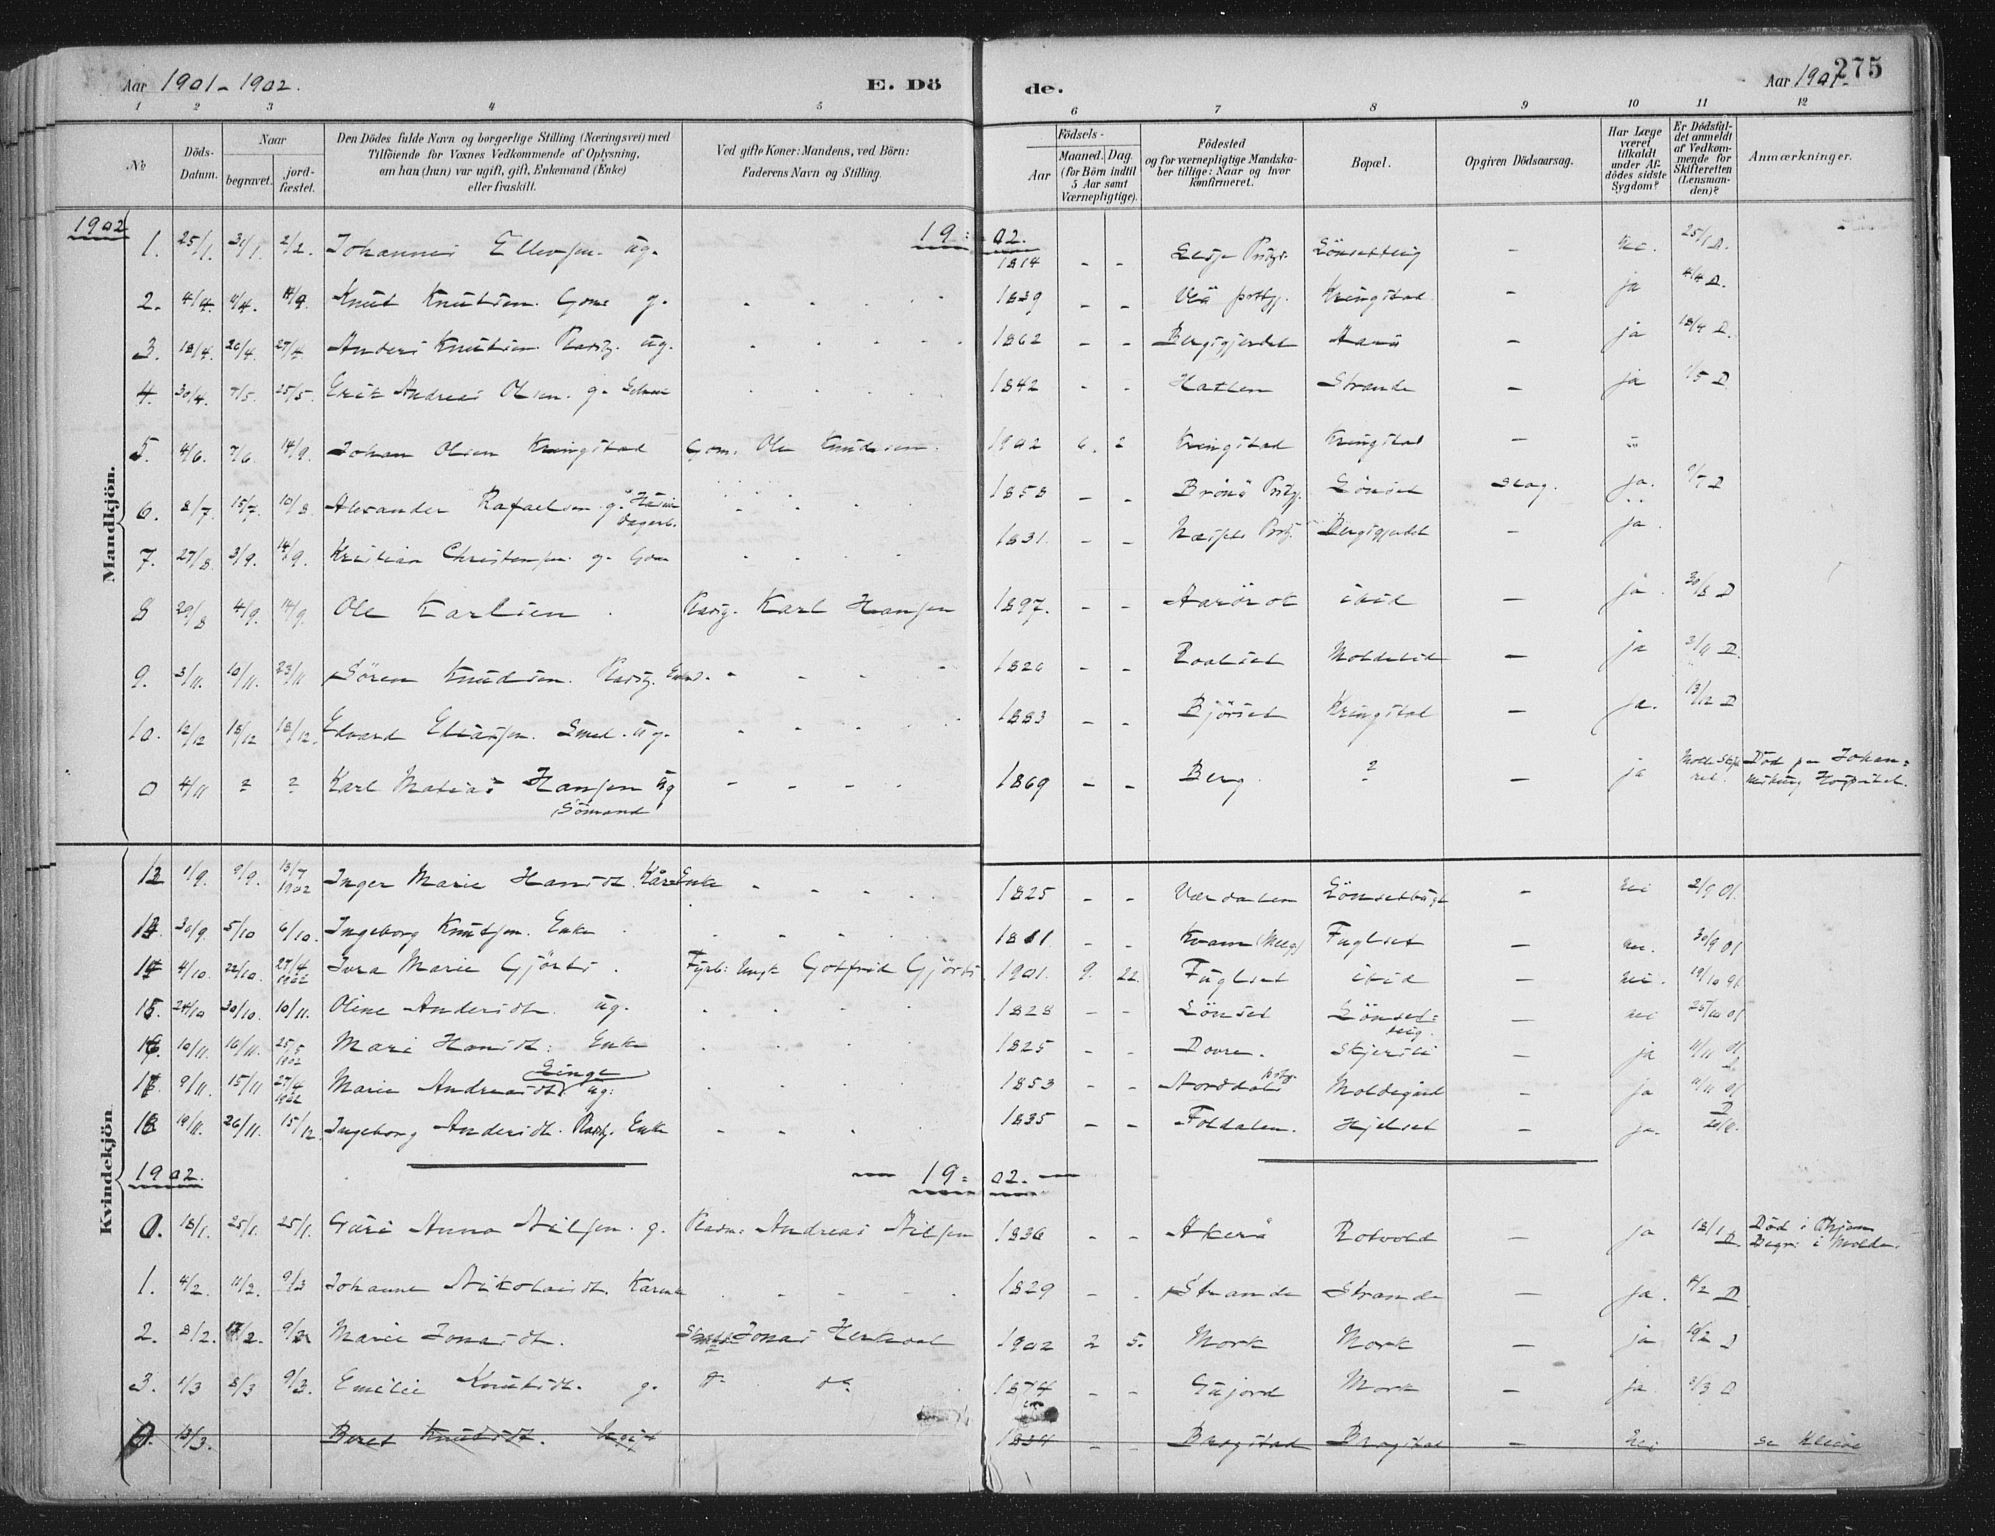 Aar 1901-1902. E. Dö de. Aar 1901. 275
1 2 3 4 5 6 7 8 9 10 11 12
№ Döds-Datum. Naar begravet. jord-fæstet.
Den Dödes fulde Navn og borgerlige Stilling (Næringsvei) med
Tilföiende for Voxnes Vedkommende af Oplysning,
om han (hun) var ugift, gift, Enkemand (Enke)
eller fraskilt.
Ved gifte Koner: Mandens, ved Börn:
Faderens Navn og Stilling.
Födsels-
Aar Maaned. Dag.
(for Börn indtil
5 Aar samt
Værnepligtige).
Födested
og for værnepligtige Mandska-
ber tillige: Naar og hvor
konfirmeret.
Bopæl.
Opgiven Dödsaarsag.
Har Læge
været
tilkaldt
under Af-
dödes sidste
Sygdom?
Er Dödsfal-
det anmeldt
af Vedkom-
mende for
Skifteretten
(Lensman-
den)?
Anmærkninger.
Mandkjön.
1902 19=02.
1. 25/1. 31/1. 2/2. Johannes Ellevsen. ug. 1814 - - Lönsetteig - nei. 25/1 D.
2. 4/4. 11/4. 14/9. Knut Knutsen. Gom. g. 1839 - - Kringstad - ja 4/4 D.
3. 18/4. 26/4. 27/4. Anders Knutsen. Pladsg. ug. 1862 - - Bergsgjerdet Aarö - ja 18/4 D.
4. 30/4. 7/5. 25/5. Erik Andreas Olsen. g. 1842 - - Hatlen Strande - ja 1/5 D
5. 4/6. 7/6. 14/9. Johan Olsen Kringstad Gom. Ole Knudsen. 1902 6. 2 Kringstad Kringstad -
6. 8/7. 15/7. 10/8 Alexander Rafaelsen g. 1858 - - Lönset Slag. ja. 9/7 D
7. 27/8. 3/9. 14/9. Kristian Christensen. g. Gom 1831. - - Bergsgjerdet ja.
8 29/8 4/9. 14/9. Ole Karlsen. Pladsg. Karl Hansen 1897. - - Aarör ok ibid - ja. 30/8 D
9. 3/11. 10/11. 23/11 Sören Knudsen. Pladsg. Enkm. 1820 - - Roalset Moldelid - ja 3/11 D.
10. 12/12 18/12 18/12. Edvard Eliassen. Smed. ug. 1883 - - Bjørset Kringstad - ja. 13/12 D
0 4/11 ? ? Karl Matias Hansen ug 1869 - - Berg. ? - ja Död paa Johan=
Sömand
Kvindekjön.
12 1/9. 9/9. 13/7 1902 Inger Marie Hansdt. Kåre Enke 1825 - - Værdalen Lönsetbugt - nei 2/9 01.
13. 30/9. 5/10 6/10. Ingeborg Knutsen. Enke 1811 - - Kvam Fuglset - nei. 30/9 01
14. 4/10. 22/10. 27/4 1902 Ivra Marie Gjörts. Gotfred Gjörts 1901. 9. 22. Fuglset ibid - nei. 19/10 01.
15. 24/10 30/10. 10/11. Oline Andersdt. ug. 1828 - - Lönset Lönset=
teig. - nei 25/10 01
16. 10/11. 16/11. 25/5 1902 Mari Hansdt. Enke 1825 - - Dovre. Skjersli - ja 11/11 01
17. 9/11. 15/11 27/4 1902 Marie Andreasdt. ug. 1853 - - Norddals Moldegård - ja 11/11 01
18 19/11. 26/11. 15/12. Ingeborg Andersdt. Pladsg. Enke 1835 - - Foldalen. Hjelset - ja.
1902. 19=02.
0. 18/1. 25/1. 25/1. Guri Anna Nilsen. g. Pladsm: Andreas Nilsen 1836 - - Akerö Rotvold - ja 18/1 D Död i
Begr. i Molde.
1. 4/2. 11/2. 9/3 Johanne Nikolaisdt. Kårenke 1829 - - Strande Strande - ja. 4/2 D
2. 8/2. 17/2. 9/3 Marie Jonasdt. Jonas 1902 2 5. Mork Mork - ja 10/2 D
3. 1/3 8/3 9/3. Emilie Knutsdt. g. 1874 - - Gujord Mork - ja. 3/3 D
0. 13/3. Beret Knutsdt. 1834 - - Bragstad Bragstad - nei se Kleive